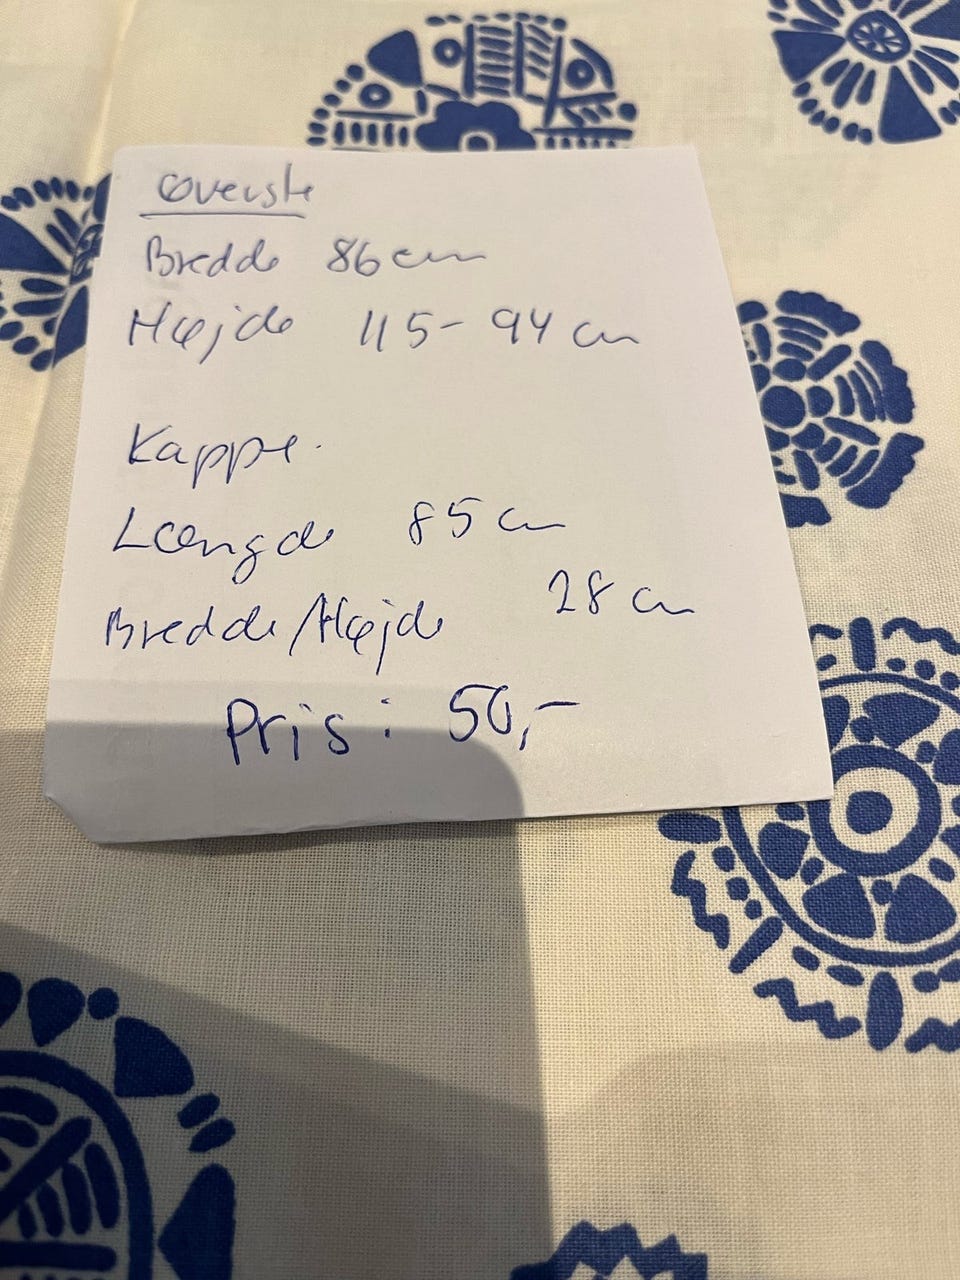 Øverste
Bredde 86 cm
Højde 115 - 94 cm
Kappe.
Længde 85 cm
Bredde/Højde 28 cm
Pris: 50,-